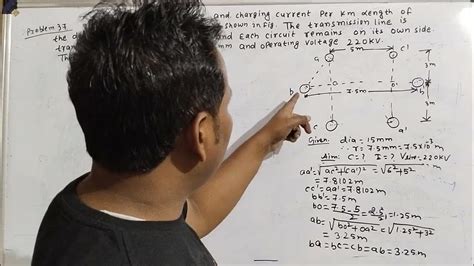 Problem 37
and charging current Per Km length of
shown in fig. The transmission line is
the d and Each circuit remains on its own side
tran mm and operating voltage 220KV.
Th
5m
a c'
3m
b 0 0' b'
7.5m
3m
c a'
Given: dia = 15mm
∴ r = 7.5mm = 7.5x10⁻³m
Aim: C = ? I = ? Vline = 220KV
aa' = √ac²+(ca')² = √6²+5²
= 7.8102m
cc' = aa' = 7.8102m
bb' = 7.5m
bo = 7.5-5/2 = 2.5/2 = 1.25m
ab = √bo²+oa² = √1.25²+3²
= 3.25m
ba = bc = cb = ab = 3.25m